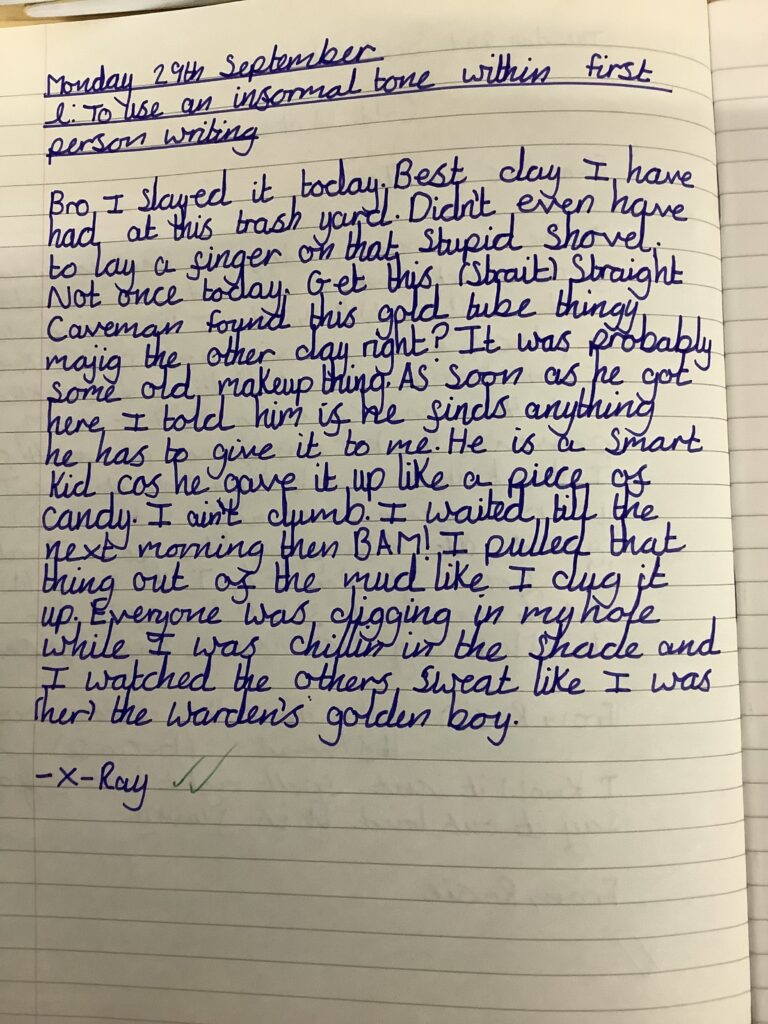 Monday 29th September
l: To use an informal tone within first
person writing
Bro, I slayed it today. Best day I have
had at this trash yard. Didn't even have
to lay a finger on that stupid shovel.
Not once today. Get this, (Strait) Straight
Caveman found this gold tube thingy
majig the other day right? It was probably
some old makeup thing. As soon as he got
here, I told him if he finds anything
he has to give it to me. He is a smart
kid cos he gave it up like a piece of
candy. I ain't dumb. I waited till the
next morning then BAM! I pulled that
thing out of the mud like I dug it
up. Everyone was digging in my hole
while I was chillin in the shade and
I watched the others sweat like I was
(her) the Warden's golden boy.
-X-Ray